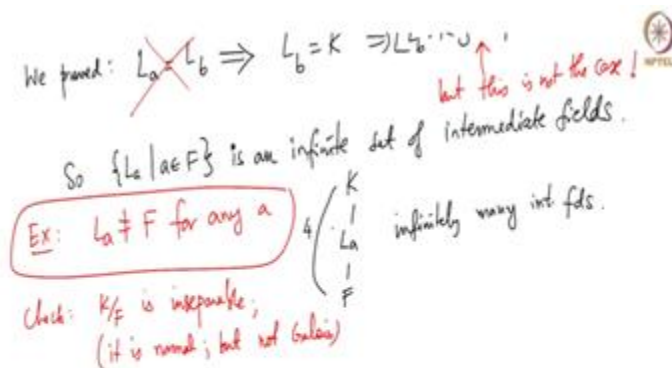 We proved: La = Lb ⇒ Lb = K ⇒
but this is not the case!
So {La | a∈F} is an infinite set of intermediate fields.
Ex: La ≠ F for any a
4 K
La
F
infinitely many int. fds.
Check: K/F is inseparable;
(it is normal; but not Galois)
NPTEL